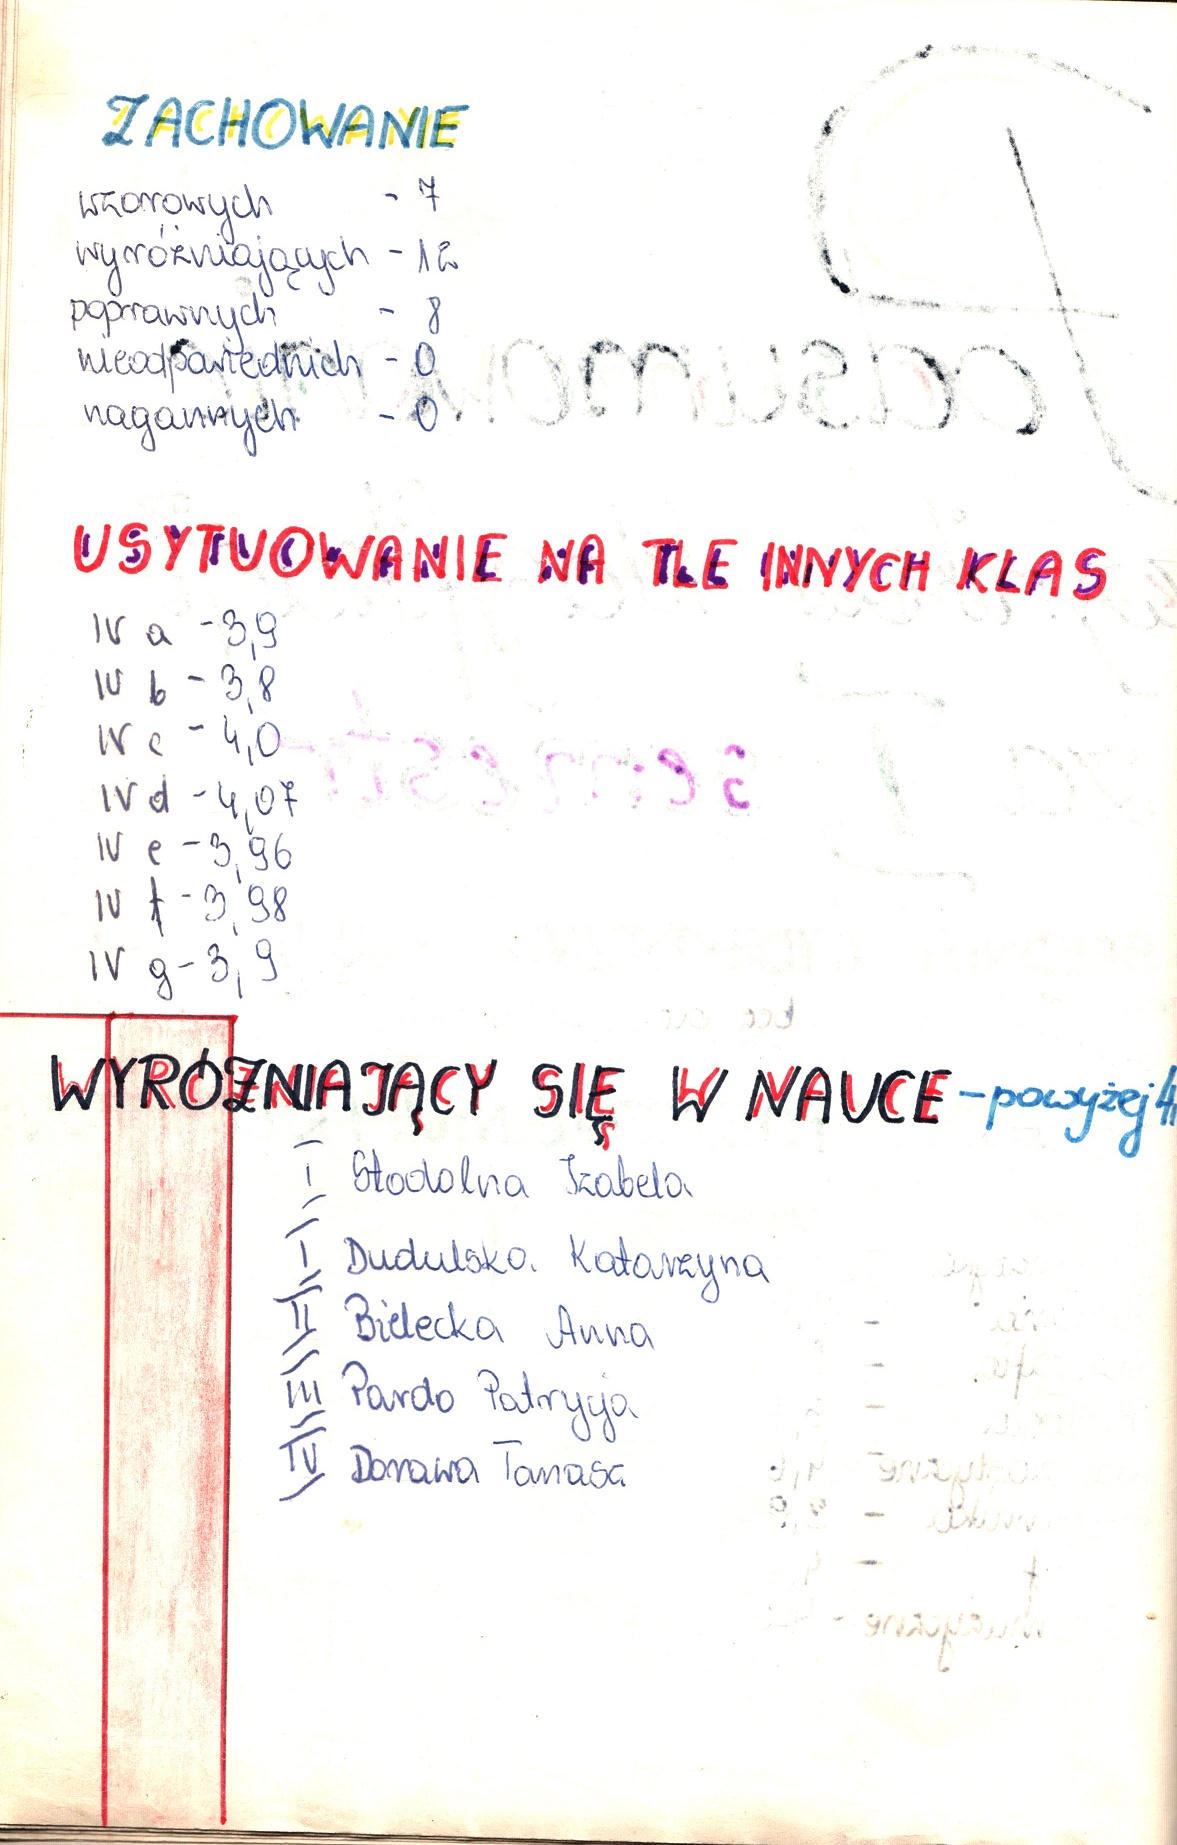 ZACHOWANIE
wzorowych - 7
wyróżniających - 12
poprawnych - 8
nieodpowiednich - 0
nagannych - 0
USYTUOWANIE NA TLE INNYCH KLAS
IV a - 3,9
IV b - 3,8
IV c - 4,0
IV d - 4,07
IV e - 3,96
IV f - 3,98
IV g - 3,9
WYRÓŻNIAJĄCY SIĘ W NAUCE - powyżej 4,
I Stodolna Izabela
I Dudulska Katarzyna
II Bielecka Anna
III Pardo Patrycja
IV Dorawa Tamasa